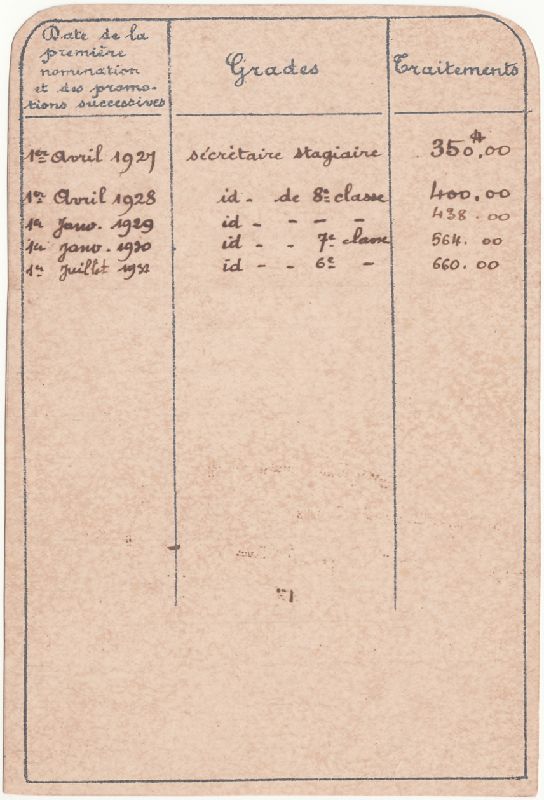 Date de la
première
nomination
et des promo-
tions successives
Grades
Traitements
1er Avril 1927 sécrétaire stagiaire 350#.00
1er Avril 1928 id - de 8e classe 400.00
1er Janv. 1929 id - - - - 438.00
1er Janv. 1930 id - - 7e classe 564.00
1er Juillet 1932 id - - 6e - 660.00